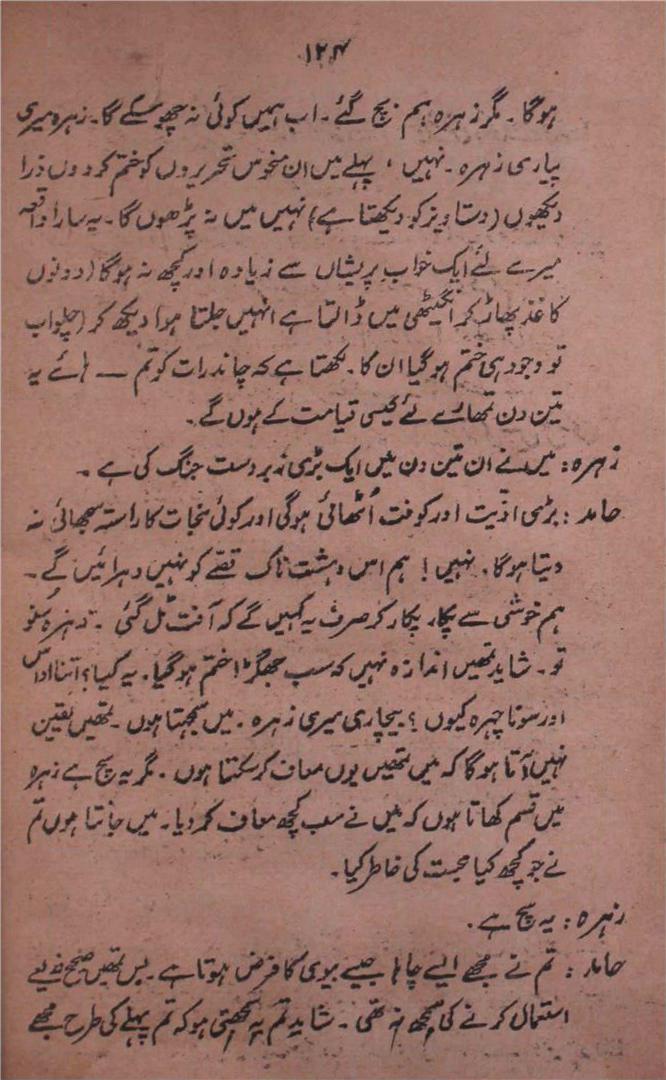 ۱۲۴
ہوگا۔ مگر زہرہ ہم بچ گئے۔ اب ہمیں کوئی نہ چھو سکے گا۔ زہرہ میری
پیاری زہرہ۔ نہیں، پہلے میں ان منحوس تحریروں کو ختم کردوں ذرا
دیکھوں (دستاویز کو دیکھتا ہے) نہیں میں نہ پڑھوں گا۔ یہ سارا واقعہ
میرے لئے ایک خواب پریشاں سے زیادہ اور کچھ نہ ہوگا (دونوں
کاغذ پھاڑ کر انگیٹھی میں ڈالتا ہے انہیں جلتا ہوا دیکھ کر) چلو اب
تو وجود ہی ختم ہو گیا ان کا۔ لکھتا ہے کہ چاند رات کو تم — ہائے یہ
تین دن تمھارے لئے کیسی قیامت کے ہوں گے۔
زہرہ: میں نے ان تین دن میں ایک بڑی زبردست جنگ کی ہے۔
حامد: بڑی اذیت اور کوفت اُٹھائی ہوگی اور کوئی نجات کا راستہ سجھائی نہ
دیتا ہوگا۔ نہیں! ہم اس دہشت ناک قصے کو نہیں دہرائیں گے۔
ہم خوشی سے پکار پکار کر صرف یہ کہیں گے کہ آفت ٹل گئی۔ زہرہ سنو
تو۔ شاید تمھیں اندازہ نہیں کہ سب جھگڑا ختم ہوگیا۔ یہ کیا؟ اتنا اداس
اور سونا چہرہ کیوں؟ بیچاری میری زہرہ۔ میں سمجہتا ہوں۔ تمھیں یقین
نہیں آتا ہوگا کہ میں تمھیں یوں معاف کرسکتا ہوں۔ مگر یہ سچ ہے زہرہ
میں قسم کھاتا ہوں کہ میں نے سب کچھ معاف کر دیا۔ میں جانتا ہوں تم
نے جو کچھ کیا محبت کی خاطر کیا۔
زہرہ: یہ سچ ہے۔
حامد: تم نے مجھے ایسے چاہا جیسے بیوی کا فرض ہوتا ہے۔ بس تمھیں صحیح ذریعے
استعمال کرنے کی سمجھ نہ تھی۔ شاید تم یہ سمجھتی ہو کہ تم پہلے کی طرح مجھے